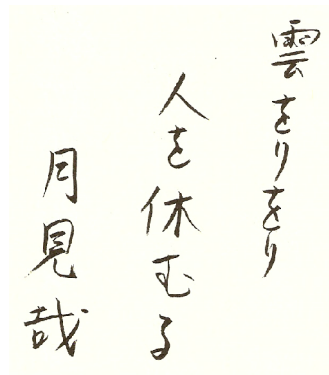 雲をりをり
人を休むる
月見哉